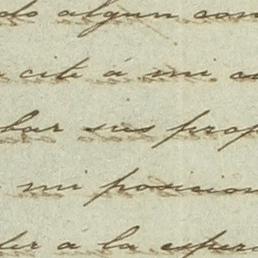 do algun con
cite á mi
bar sus prop
mi posicion
der a la espera